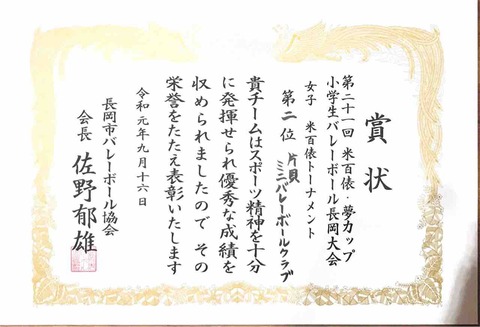 賞状
第二十一回 米百俵・夢カップ
小学生バレーボール長岡大会
女子 米百俵トーナメント
第二位 片貝ミニバレーボールクラブ
貴チームはスポーツ精神を十分
に発揮せられ優秀な成績を
収められましたので その
栄誉をたたえ表彰いたします
令和元年九月十六日
長岡市バレーボール協会
会長 佐野郁雄